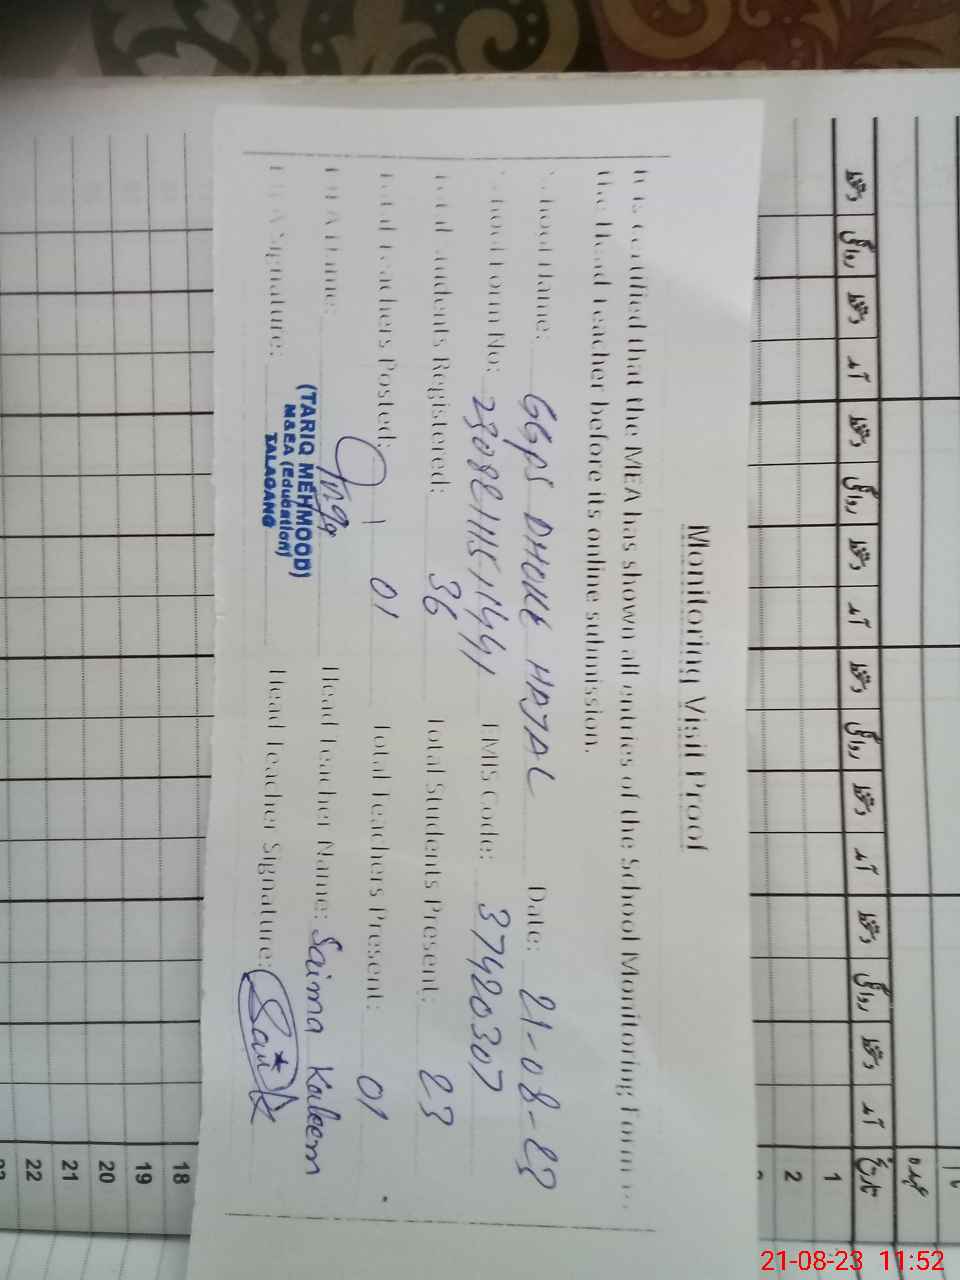 Monitoring Visit Proof
It is certified that the MEA has shown all entries of the School Monitoring Form to
the Head Teacher before its online submission.
School Name: GGPS DHOKE HAJAL Date: 21-08-23
School Form No: EMIS Code: 37420307
Total Students Registered: 36 Total Students Present: 23
Total Teachers Posted: 01 Total Teachers Present: 01
MEA Name: Head Teacher Name: Saima Kaleem
MEA Signature: Head Teacher Signature:
(TARIQ MEHMOOD)
M&EA (Education)
TALAGANG
دستخط روانگی دستخط آمد دستخط روانگی دستخط آمد دستخط روانگی دستخط آمد دستخط روانگی دستخط آمد تاریخ
عہدہ
1
2
18
19
20
21
22
21-08-23 11:52